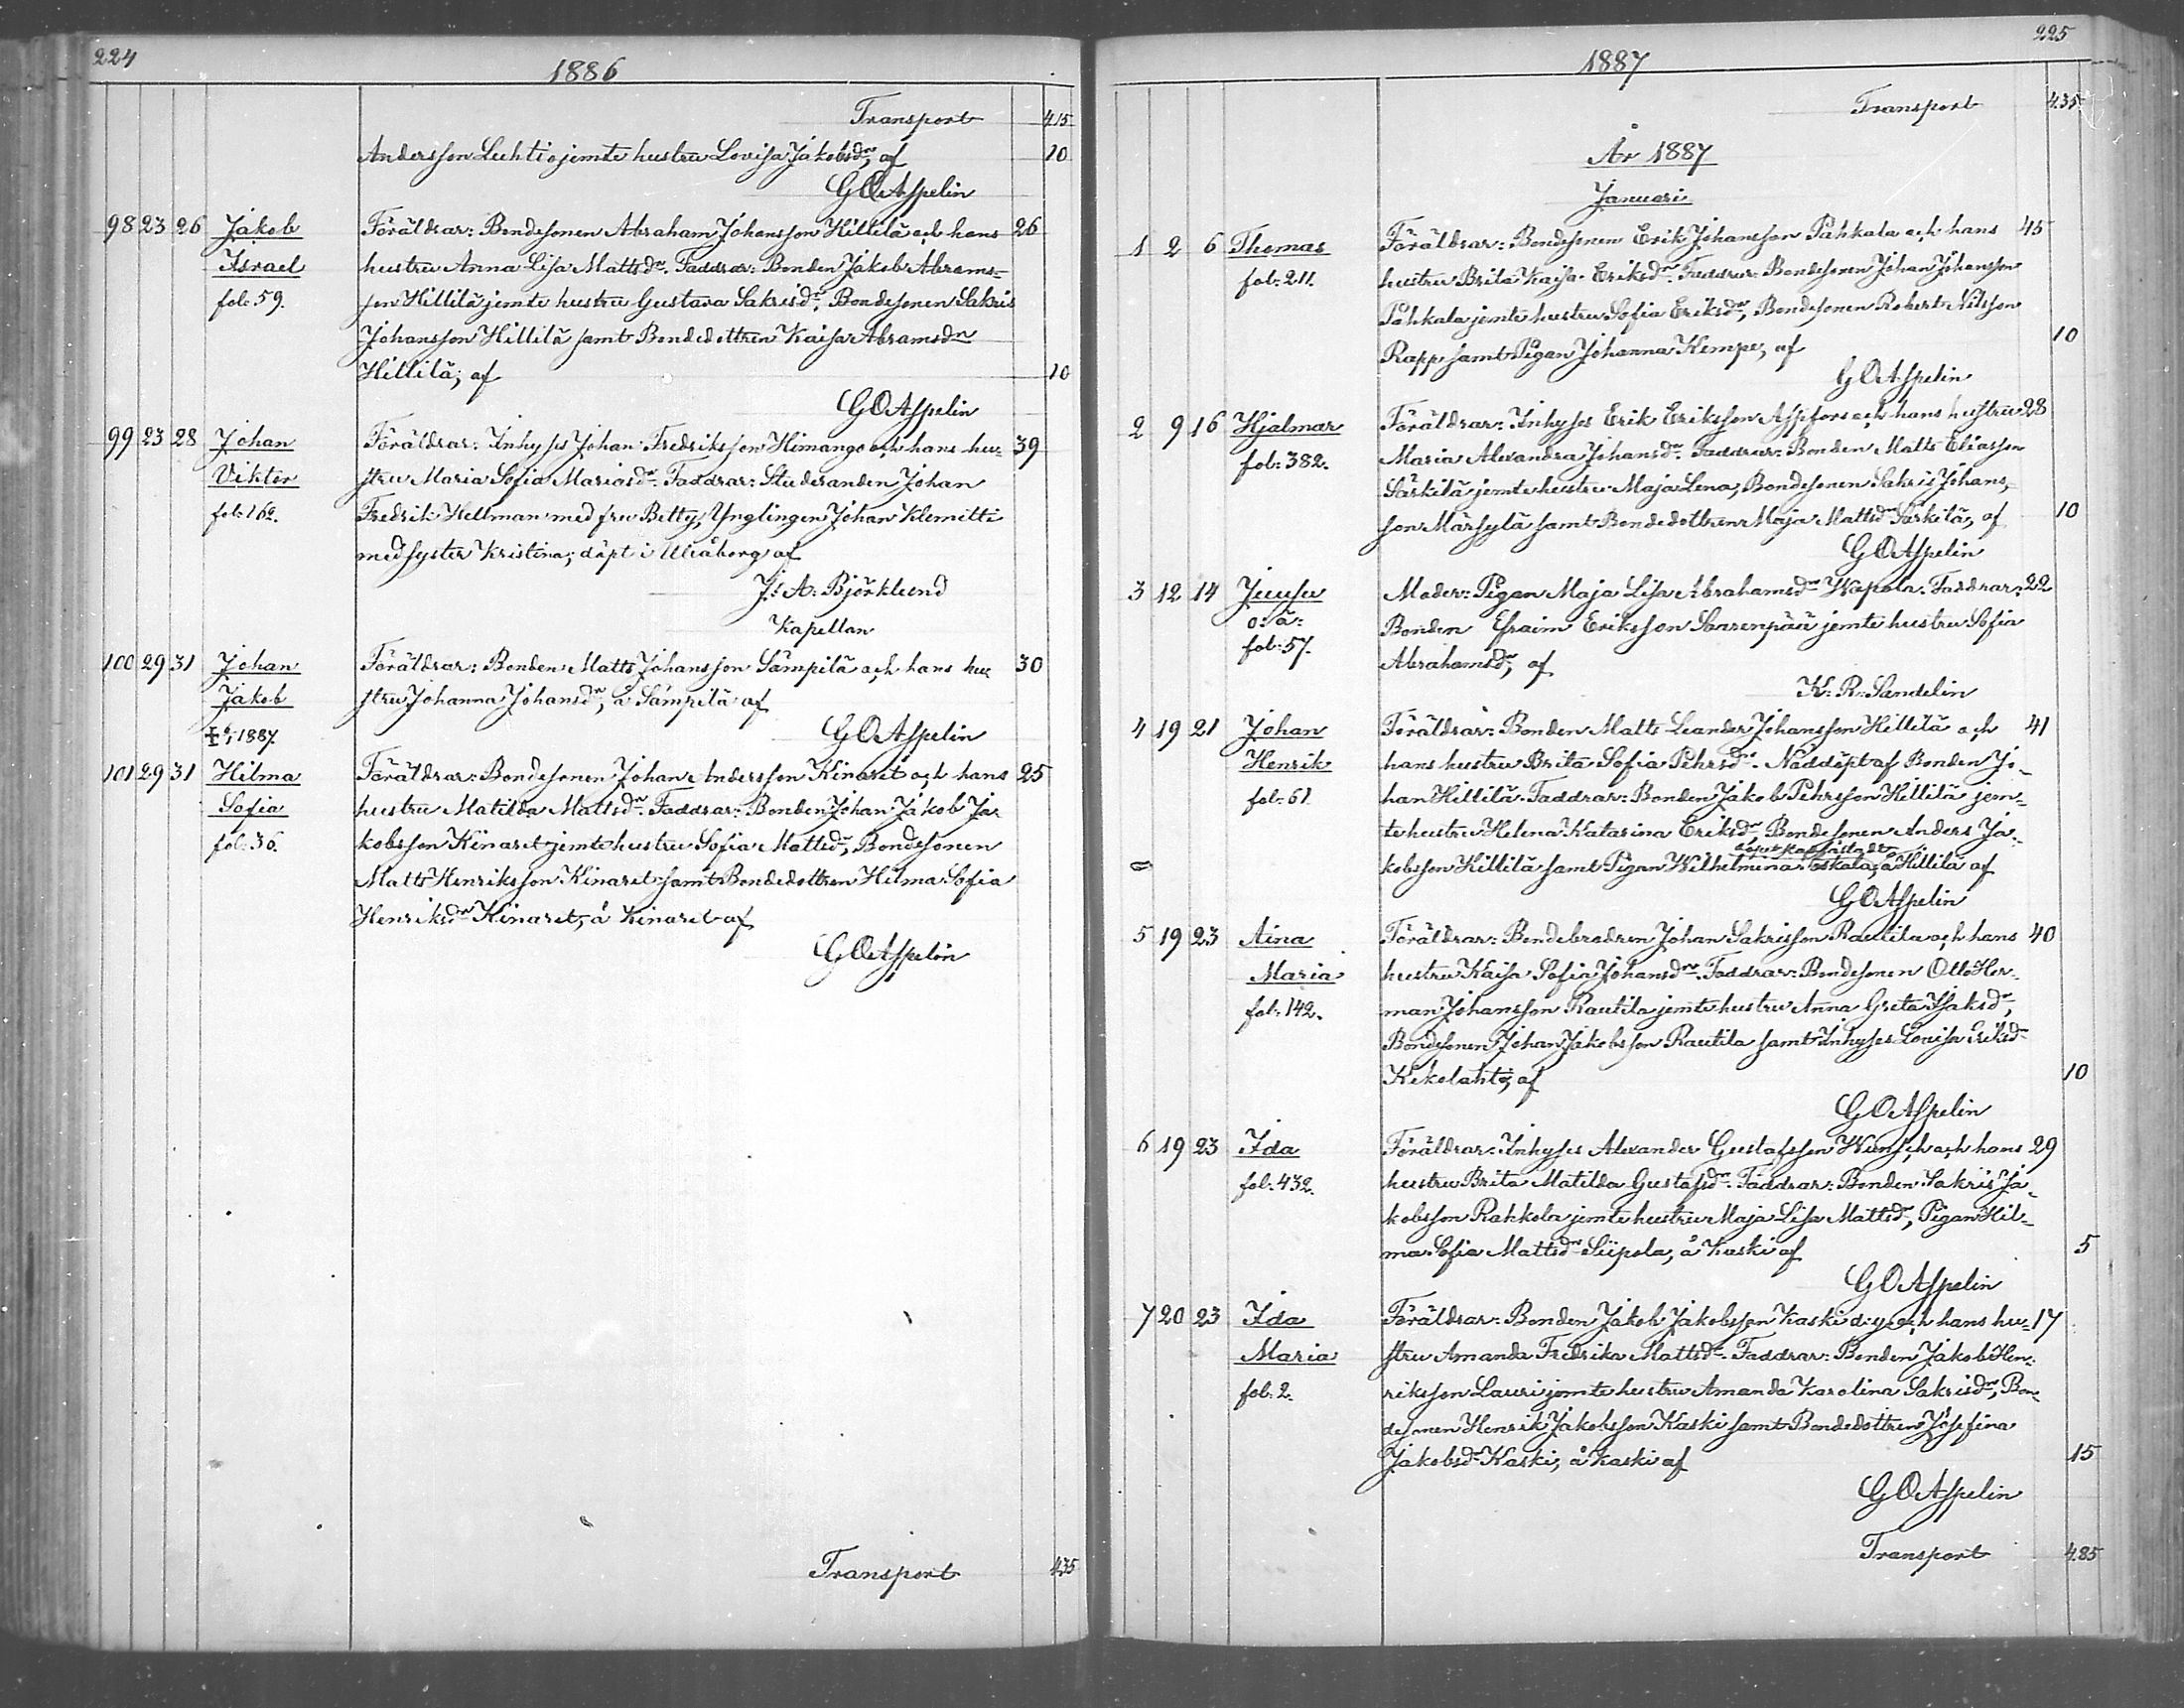 224
1886
Transport 4,15
Andersson Luhtio jemte hustru Lovisa Jakobsdr, af 10
G O Aspelin
98 23 26 Jakob Föräldrar: Bondesonen Abraham Johansson Hillilä och hans 26
Israel hustru Anna Lisa Mattsdr. Faddrar: Bonden Jakob Abrams-
fol: 59. son Hillilä jemte hustru Gustava Sakrisdr, Bondesonen Sakris
Johansson Hillilä samt Bondedottren Kaisa Abramsdr
Hillilä, af 10
G O Aspelin
99 23 28 Johan Föräldrar: Inhyses Johan Fredriksson Himango och hans hu- 39
Viktor stru Maria Sofia Mariasdr. Faddrar: Studeranden Johan
fol: 162. Fredrik Hellman med fru Betty, Ynglingen Johan Klemitti
med syster Kristina; döpt i Uleåborg af
J. A. Björklund
Kapellan
100 29 31 Johan Föräldrar: Bonden Matts Johansson Sämpilä och hans hu- 30
Jakob stru Johanna Johansdr, å Sämpilä af
1887. G O Aspelin
101 29 31 Hilma Föräldrar: Bondesonen Johan Andersson Kinaret och hans 25
Sofia hustru Matilda Mattsdr. Faddrar: Bonden Johan Jakob Ja-
fol: 36. kobsson Kinaret jemte hustru Sofia Mattsdr, Bondesonen
Matts Henriksson Kinaret samt Bondedottren Hilma Sofia
Henriksdr Kinaret, å Kinaret af
G O Aspelin
Transport 4,35
225
1887
Transport 4,35
År 1887
Januari
1 2 6 Thomas Föräldrar: Bondesonen Erik Johansson Pahkala och hans 45
fol: 211. hustru Brita Kaisa Eriksdr. Faddrar: Bondesonen Johan Johansson
Pahkala jemte hustru Sofia Eriksdr, Bondesonen Robert Nilsson
Rapp samt Pigan Johanna Kempe, af 10
G O Aspelin
2 9 16 Hjalmar Föräldrar: Inhyses Erik Eriksson Aspfors och hans hustru 28
fol: 382. Maria Alexandra Johansdr. Faddrar: Bonden Matts Eliasson
Särkilä jemte hustru Maja Lena, Bondesonen Sakris Johans-
son Märsylä samt Bondedottren Maja Mattsdr Särkilä, af 10
G O Aspelin
3 12 14 Juusu Moder: Pigan Maja Lisa Abrahamsdr Wapola. Faddrar: 22
o: ä: Bonden Efraim Eriksson Saarenpää jemte hustru Sofia
fol: 57. Abrahamsdr, af
K. R. Sandelin
4 19 21 Johan Föräldrar: Bonden Matts Leander Johansson Hillilä och 41
Henrik hans hustru Brita Sofia Pehrsdr. Nöddöpt af Bonden Jo-
fol: 61. han Hillilä. Faddrar: Bonden Jakob Pehrsson Hillilä jem-
te hustru Helena Katarina Eriksdr, Bondesonen Anders Ja-
dopet stadfästadt
kobsson Hillilä samt Pigan Wilhelmina Toskala, å Hillilä af
G O Aspelin
5 19 23 Aina Föräldrar: Bondebrodren Johan Sakrisson Rautila och hans 40
Maria hustru Kaisa Sofia Johansdr. Faddrar: Bondesonen Otto Her-
fol: 142. man Johansson Rautila jemte hustru Anna Greta Isaksdr,
Bondesonen Johan Jakobsson Rautila samt Inhyses Lovisa Eriksdr
Kekolahti, af 10
G O Aspelin
6 19 23 Ida Föräldrar: Inhyses Alexander Gustafsson Wunsch och hans 29
fol: 432. hustru Brita Matilda Gustafsdr. Faddrar: Bonden Sakris Ja-
kobsson Rahkola jemte hustru Maja Lisa Mattsdr, Pigan Hil-
ma Sofia Mattsdr Siipola, å Kaski af 5
G O Aspelin
7 20 23 Ida Föräldrar: Bonden Jakob Jakobsson Kaski d:y: och hans hu- 17
Maria stru Amanda Fredrika Mattsdr. Faddrar: Bonden Jakob Hen-
fol: 2. riksson Lauri jemte hustru Amanda Karolina Sakrisdr, Bon-
desonen Henrik Jakobsson Kaski samt Bondedottren Josefina
Jakobsdr Kaski, å Kaski af 15
G O Aspelin
Transport 4,85